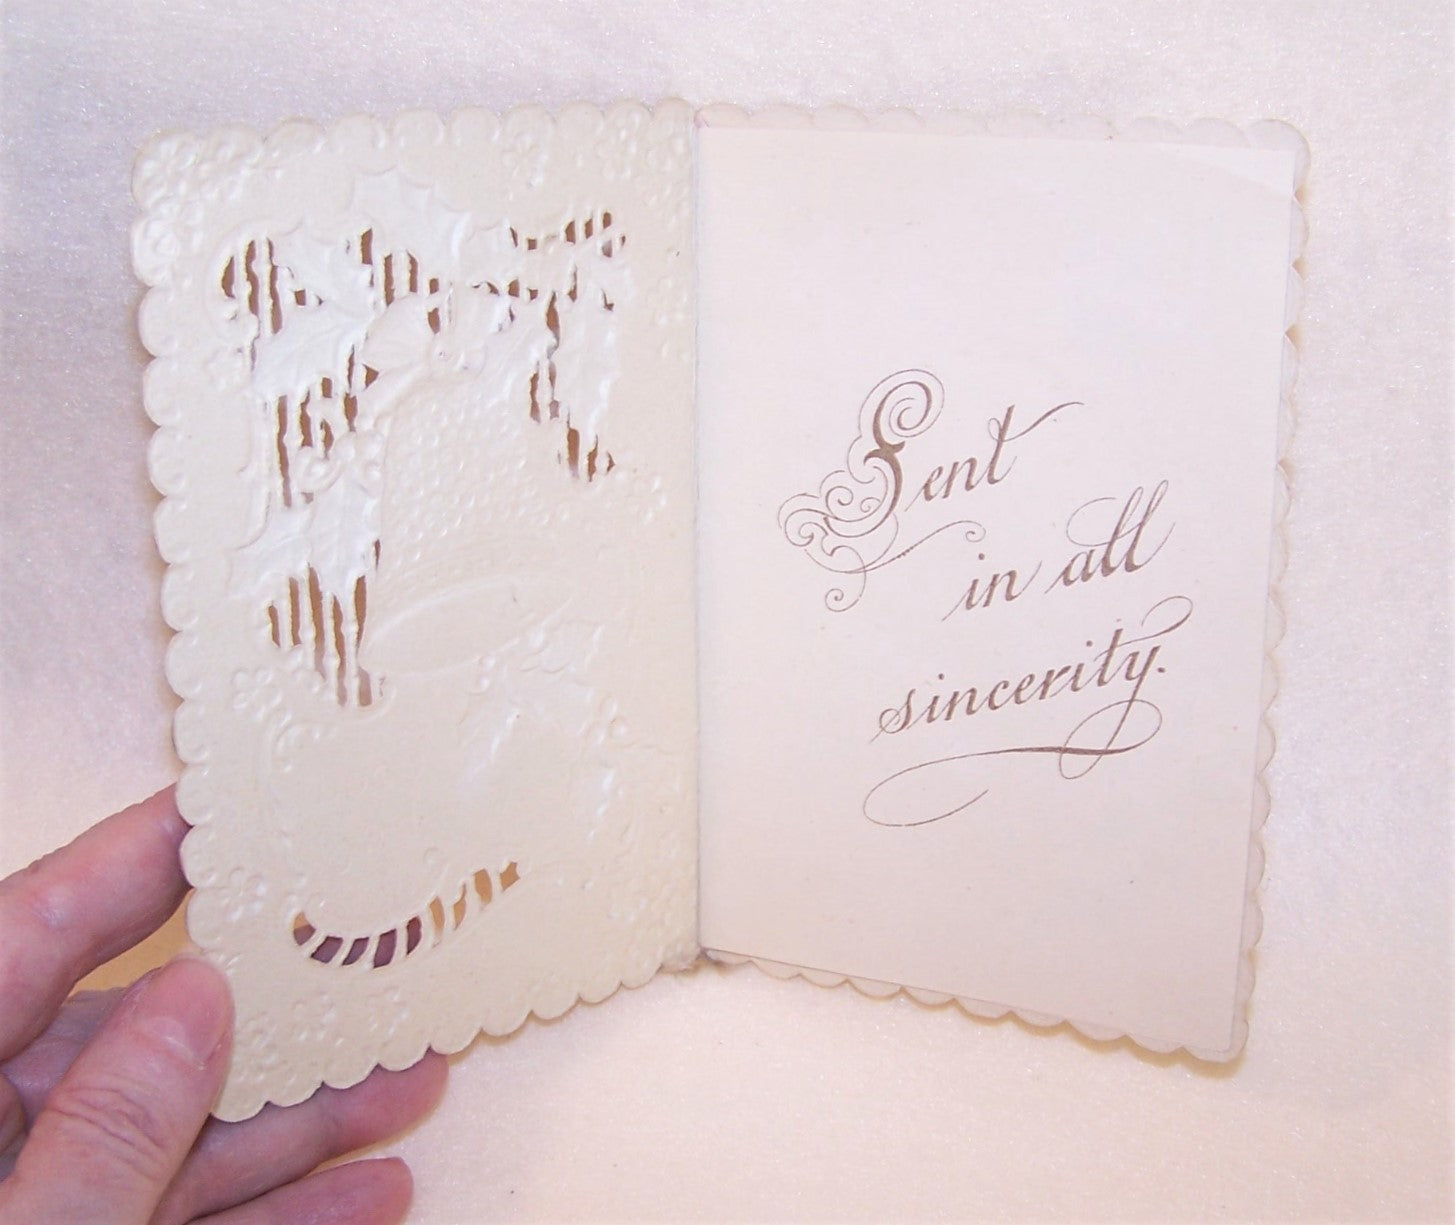 Sent
in all
sincerity.